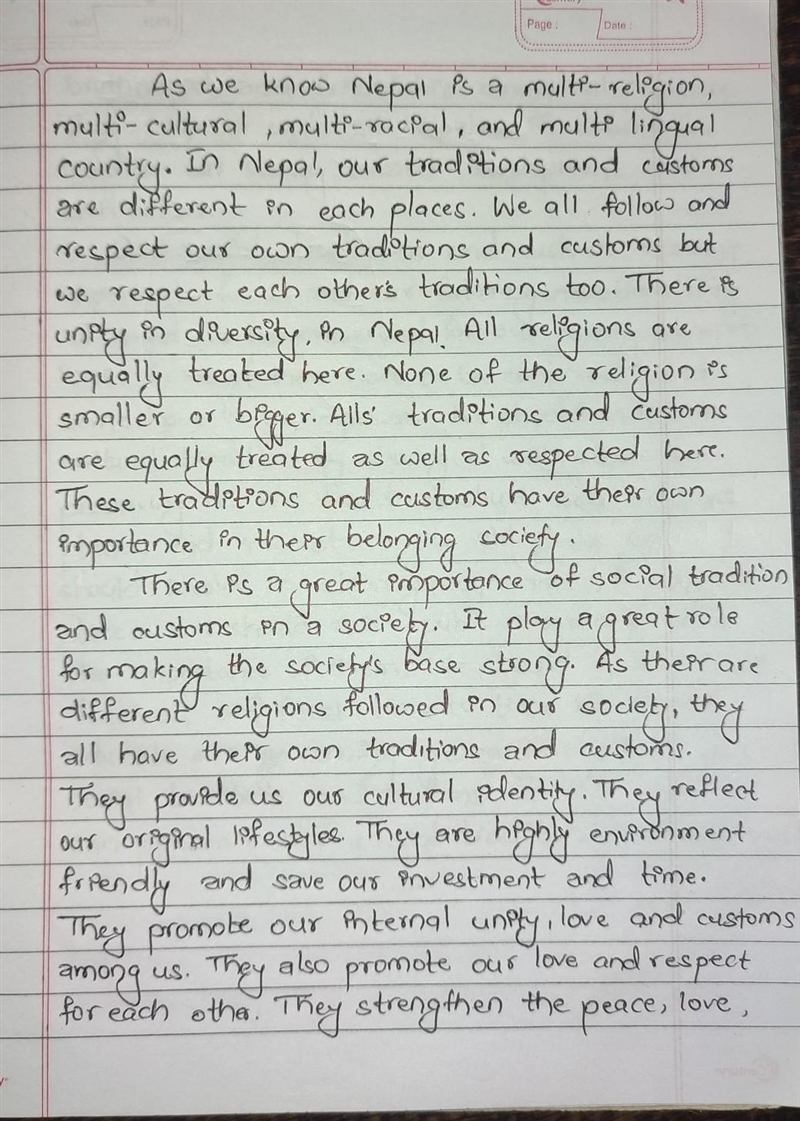 Page :
Date :
As we know Nepal is a multi-religion,
multi-cultural, multi-racial, and multi lingual
country. In Nepal, our traditions and customs
are different in each places. We all follow and
respect our own traditions and customs but
we respect each other's traditions too. There is
unity in diversity, in Nepal. All religions are
equally treated here. None of the religion is
smaller or bigger. Alls' traditions and customs
are equally treated as well as respected here.
These traditions and customs have their own
importance in their belonging society.
There is a great importance of social tradition
and customs in a society. It play a great role
for making the society's base strong. As their are
different religions followed in our society, they
all have their own traditions and customs.
They provide us our cultural identity. They reflect
our original lifestyles. They are highly environment
friendly and save our investment and time.
They promote our internal unity, love and customs
among us. They also promote our love and respect
for each other. They strengthen the peace, love,